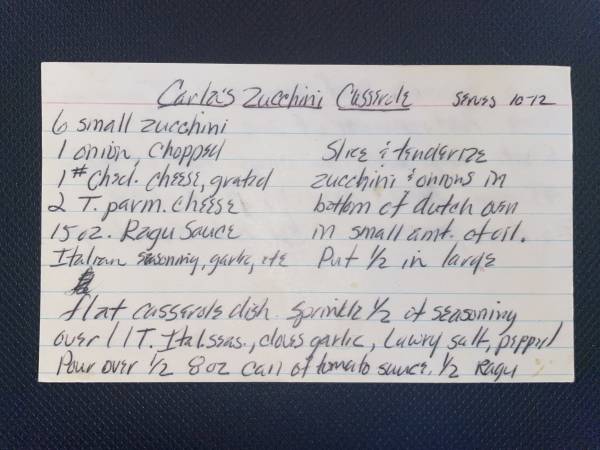 Carla's Zucchini Casserole SERVES 10-12
6 small zucchini
1 onion, chopped
1# Ched. cheese, grated
2 T. parm. cheese
15 oz. Ragu Sauce
Italian seasoning, garlic, etc
Slice & tenderize
zucchini & onions in
bottom of dutch oven
in small amt. of oil.
Put 1/2 in large
flat casserole dish. Sprinkle 1/2 of seasoning
over (1 T. Ital.seas., cloves garlic, Lawry salt, pepper)
Pour over 1/2 8 oz can of tomato sauce, 1/2 Ragu